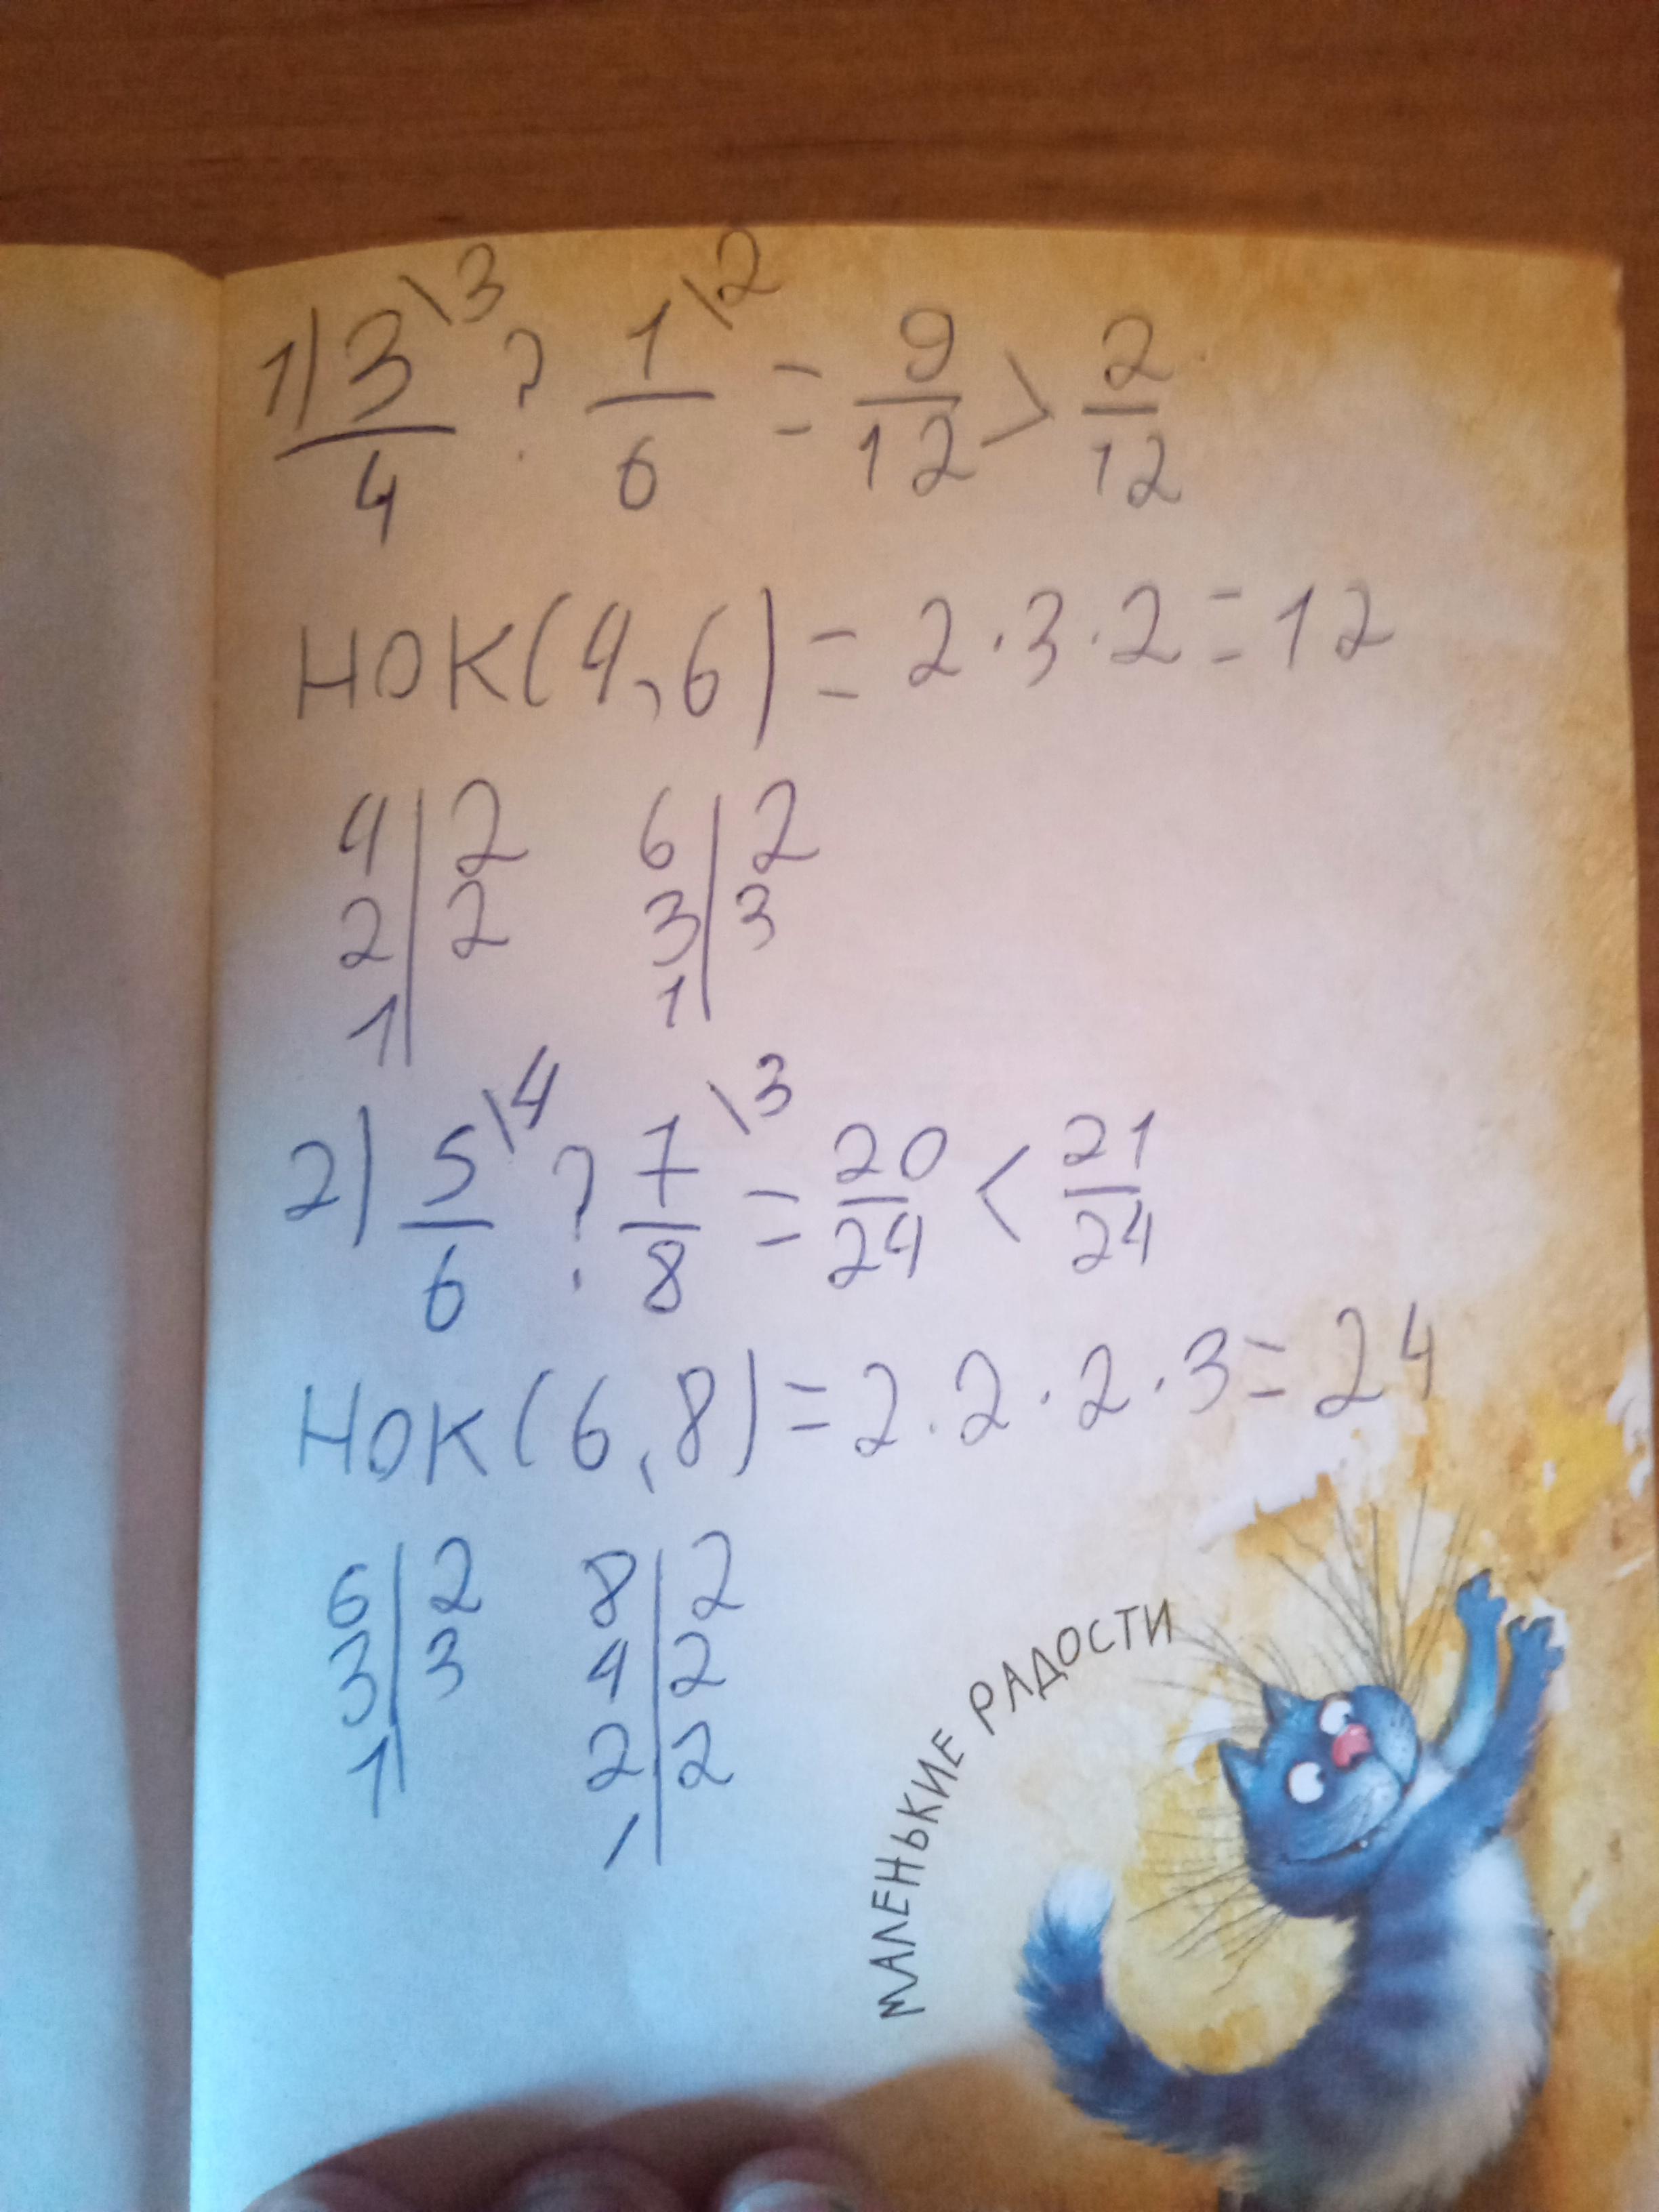 1) 3\3/4 ? 1\2/6 = 9/12 > 2/12
НОК(4,6) = 2·3·2=12
4|2 6|2
2|2 3|3
1| 1|
2) 5\4/6 ? 7\3/8 = 20/24 < 21/24
НОК(6,8)=2·2·2·3=24
6|2 8|2
3|3 4|2
1| 2|2
1|
МАЛЕНЬКИЕ РАДОСТИ